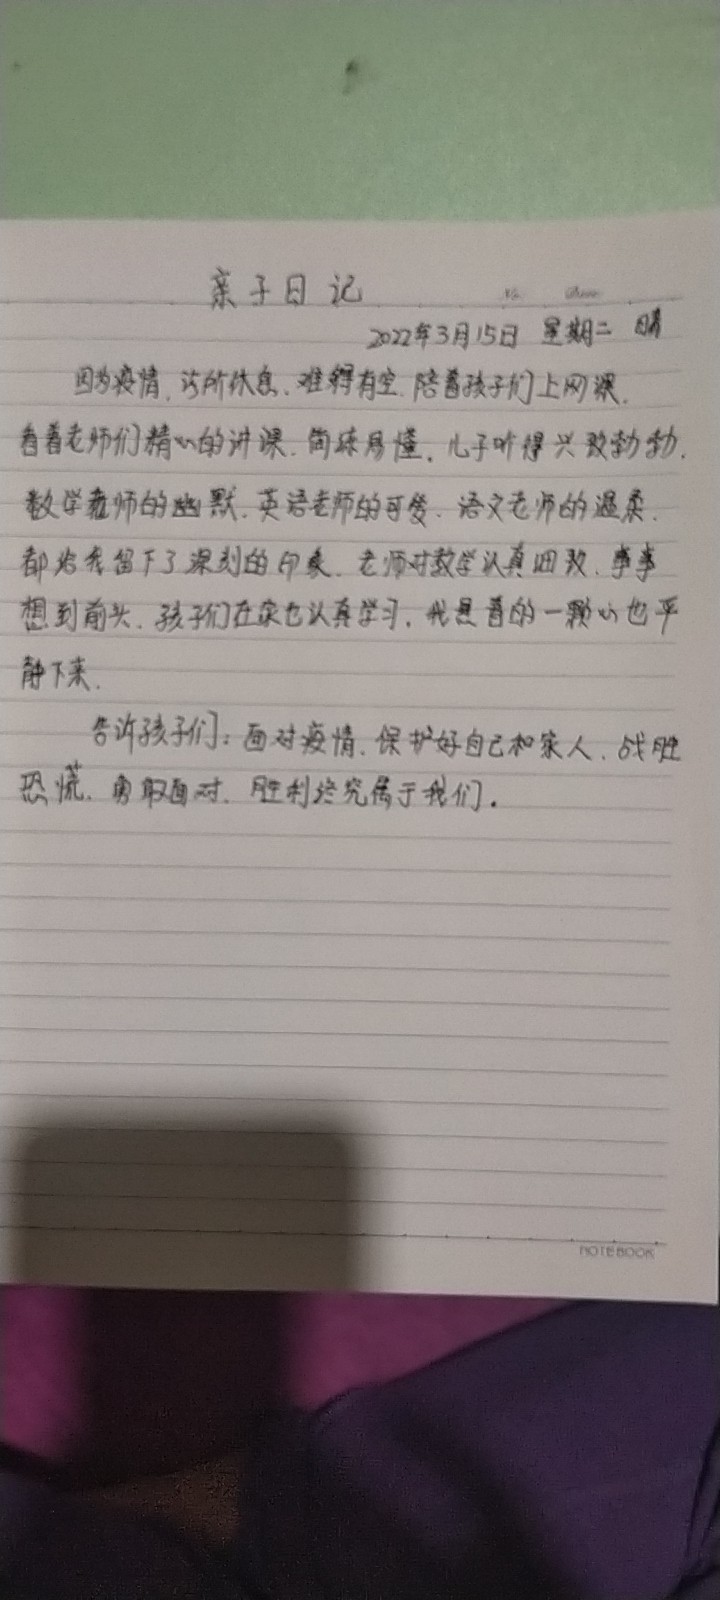 亲子日记
2022年3月15日 星期二 晴
因为疫情,诊所休息、难得有空、陪着孩子们上网课、
看着老师们精心的讲课、简练易懂、儿子听得兴致勃勃、
数学老师的幽默、英语老师的可爱、语文老师的温柔、
都给我留下了深刻的印象、老师对教学认真细致、事事
想到前头、孩子们在家也认真学习、我悬着的一颗心也平
静下来、
告诉孩子们:面对疫情、保护好自己和家人、战胜
恐慌、勇敢面对、胜利终究属于我们。
NOTEBOOK